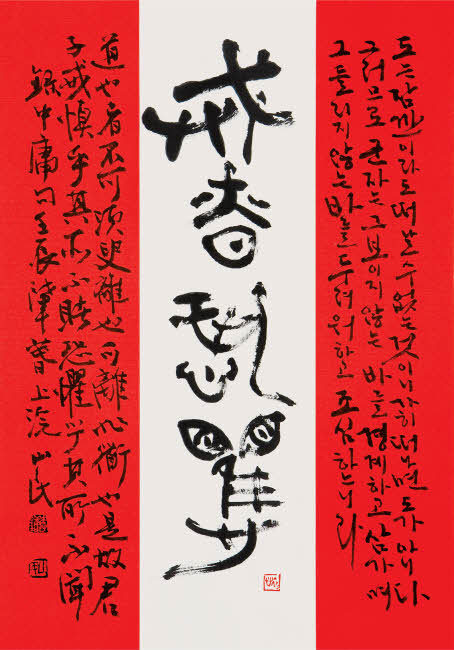 도는 잠깐이라도 떠날 수 없는 것이니 가히 떠나면 도가 아니다
그러므로 군자는 그 보이지 않는 바를 경계하고 삼가며
그 들리지 않는 바를 두려워하고 조심하느니라
戒昚恐懼
道也者不可須臾離也可離非衜也是故君
子戒慎乎其所不睹恐懼乎其所不聞
錄中庸句壬辰上浣山民